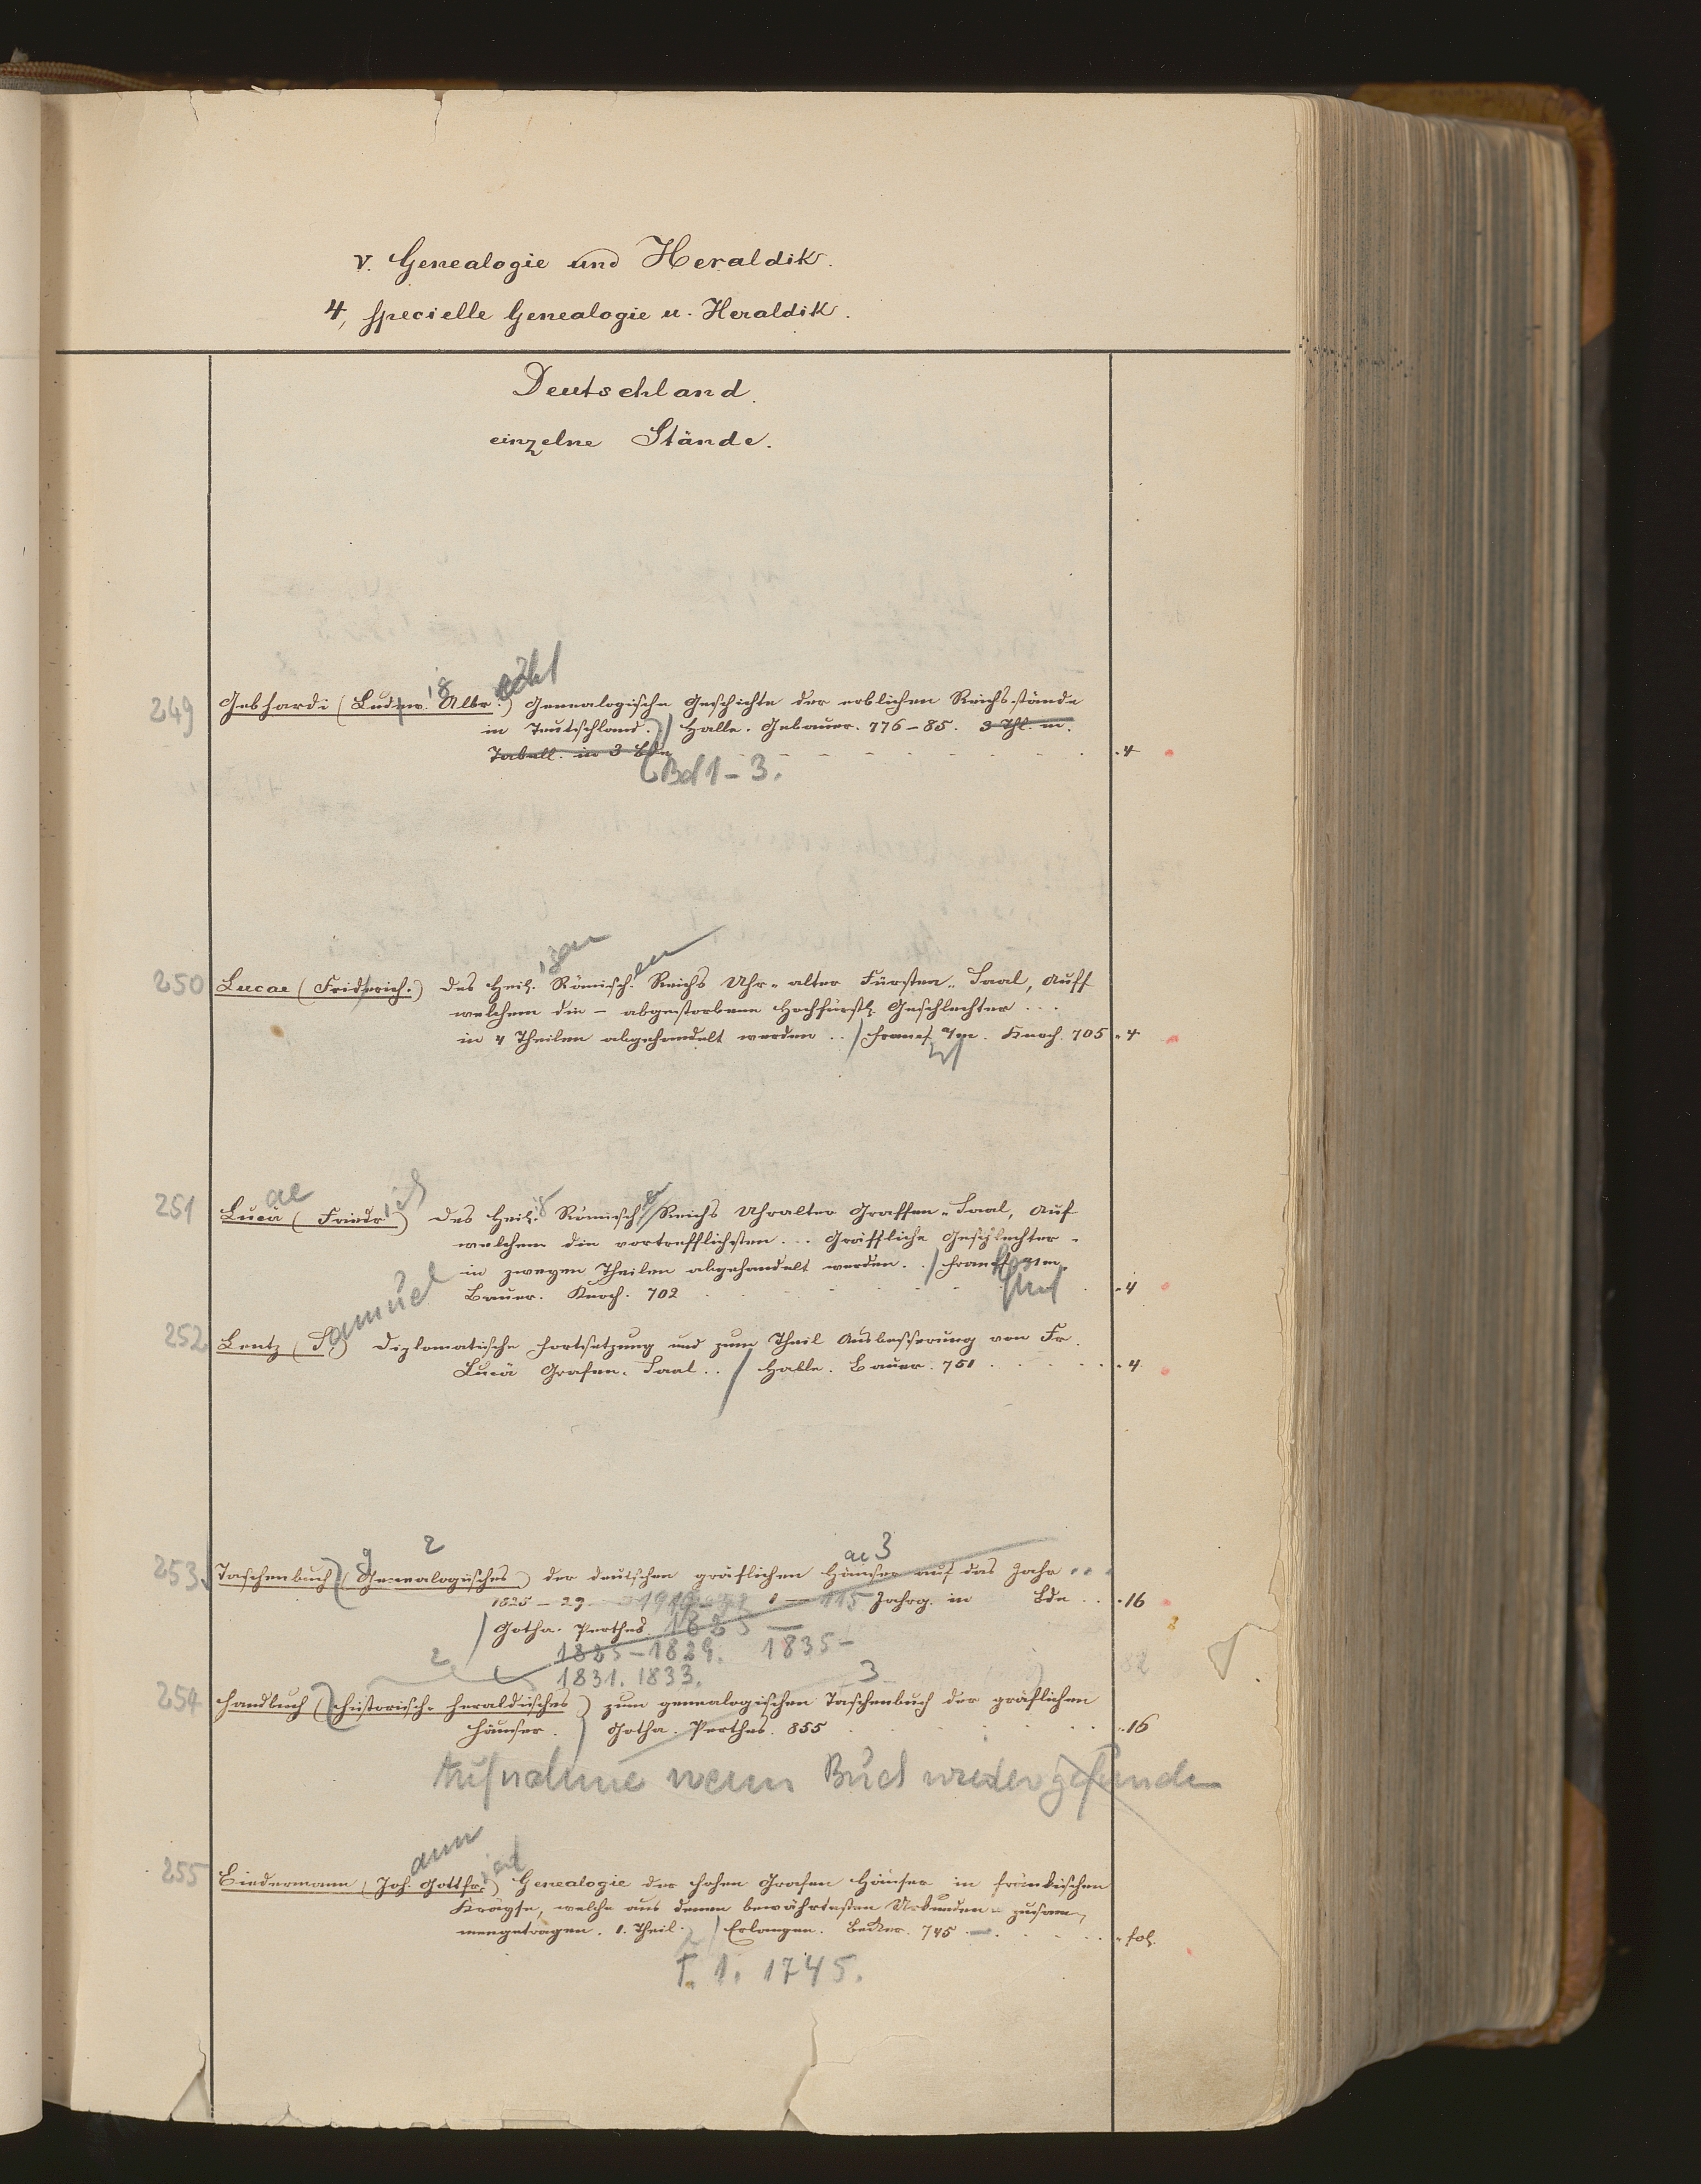 V. Genealogie und Heraldik.
4, specielle Genealogie u. Heraldik.
Deutschland.
einzelne Stände.
249 Gebhardi (Ludw. Albr.) Genealogische Geschichte der erblichen Reichsstände
in Teutschland. / Halle. Gebauer. 776-85. 3 Thl. m.
Tabell. in 3 Bdn 4
Bd 1-3.
250 Lucae (Friderich.) des Heil. Römisch. Reichs Uhr-alter Fürsten-Saal, Auff
welchem die - abgestorbene Hochfürstl. Geschlechter ...
in 4 Theilen abgehandelt werden .. / Francf. a/m. Knoch. 705 4
251 Lucä (Friedr.) des Heil. Römisch. Reichs Uhralter Graffen-Saal, Auf
ae ich ig en
welchem die vortrefflichsten ... Gräffliche Geschlechter -
in zweyen Theilen abgehandelt werden. . / Franckf a/m.
Bauer. Knoch. 702 4
252 Lentz (S.) Diplomatische Fortsetzung und zum Theil Ausbesserung von Fr.
amuel
Lucä Grafen-Saal .. / Halle. Bauer. 751 4
253 Taschenbuch (Genealogisches) der deutschen gräflichen Häuser auf das Jahr ..
g 2 ae 3
1825-29. 1 - 115 Jahrg. in Bde .. 16
/ Gotha. Perthes. 1825 -
1825-1829. 1835-
1831. 1833.
2 3
254 Handbuch (historisch-heraldisches) zum genealogischen Taschenbuch der gräflichen
Häuser. / Gotha. Perthes. 855 16
Aufnahme wenn Buch wieder gefunden
255 Biedermann (Joh. Gottfr.) Genealogie der hohen Grafen Häuser in fränkischen
ann ied
Kräyse, welche aus denen bewährtesten Urkunden - zusam-
mengetragen. 1. Theil. / Erlangen. Becker. 745 - fol.
T. 1. 1745.